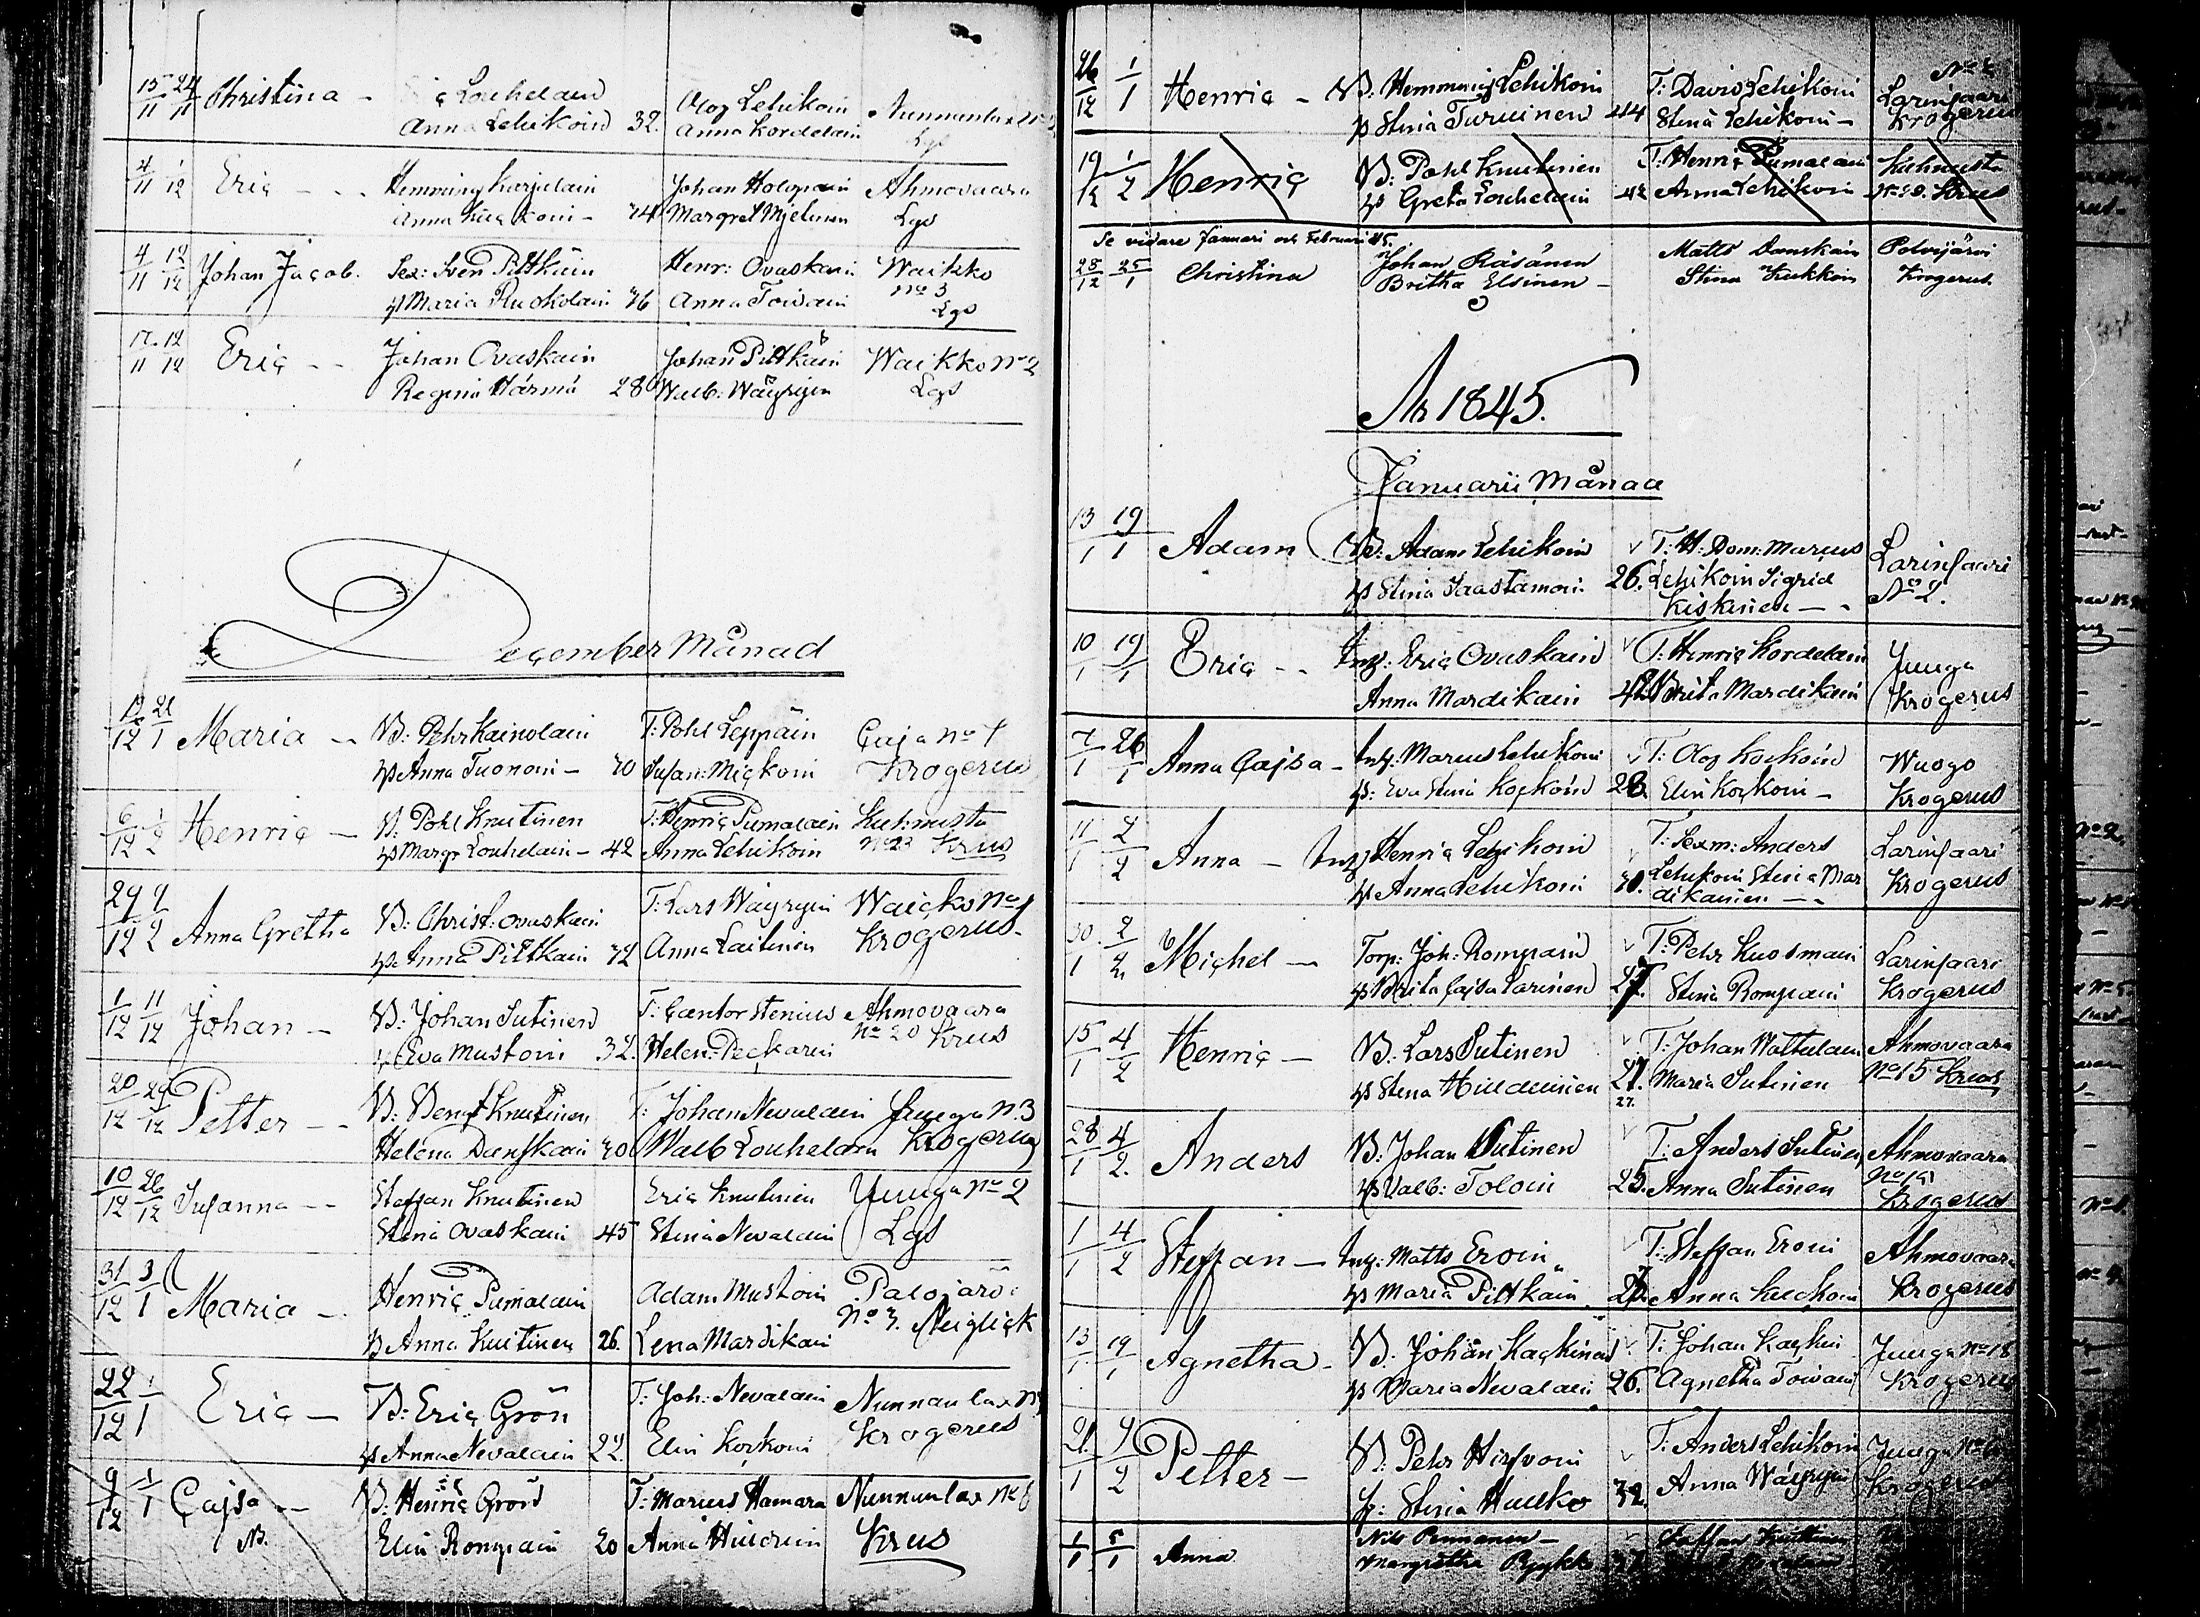 15/11 24/11 Christina - Louhelain Olog Lehikoin Nunnanlax
Anna Lehikoin 32. Anna Kordelain Lgs
4/11 1/12 Eric - - Hemming Karjalain Johan Holopain Ahmovaara
Anna 34 Margret Mjelunen Lgs
4/11 12/12 Johan Jacob. Sex: Sven Piltkäin Henr: Ovaskain Waikko
Maria Ruokolain 36 Anna Toivain No 3
Lgs
17/11 12/12 Eric - - Johan Ovaskain Johan Piltkäin Waikko No 2
Regina Härmä 28 Walb: Wäyryin Lgs
December Månad
12/12 21/1 Maria - B: Pehr Kainolain T: Pohl Leppäin Caja No 1
hs Anna Tuonoin - 30 Susan: Mickoin Krogerus
6/12 1/2 Henric - B: Pohl Knutinen T: Henric Pumalain Kuhnusta
hs Margr Louhelain - 42 Anna Lehikoin No 23 Krus
29/12 9/2 Anna Gretha B: Christ: Ovaskain T: Lars Wäyryin Waicko No 1
hs Anna Piltkain 32 Anna Laitinen Krogerus
1/12 11/12 Johan - B: Johan Sutinen T: Cantor Stenius Ahmovaara
Eva Mustoin 32. Helen: Peckarin No 20 Krus
20/12 29/12 Petter - - B: Bengt Knutinen T: Johan Nevalain Juuga N. 3
Helena Danskain 30 Walb Louhelain Krogerus
10/12 26/12 Susanna - - Steffan Knutinen Eric Knutinen Juuga No 2
Stina Ovaskain 45 Stina Nevalain Lgs
31/12 3/1 Maria - Henric Pumalain Adam Mustoin Palojärvi
hs Anna Knutinen 26. Lena Mardikain No 3.
22/12 1/1 Eric - B: Eric Grön T: Joh: Nevalain Nunnanlax
hs Anna Nevalain 22. Elin Korkoin Krogerus
9/12 1/1 Cajsa - - B: Henric Grön T: Marcus Hamara Nunnanlax No 8
NB. Elin Rompain 20 Anna Krus
26/12 1/1 Henric - B: Hemming Lehikoin T: David Lehikoin No
Larinsaari
hs Stina Turuinen 44 Stina Lehikoin - Krogerus
19/12 1/2 Henric B: Pohl Knutinen T: Henric Pumalain Kuhnusta
hs Greta Louhelain 42 Anna Lehikoin Krus
Se vidare Januari och Februari 45.
28/12 25/1 Christina Johan Räsänen Matts Danskain Polvijärvi
Britha Elsinen - Stina Kukkoin Krogerus
År 1845.
Januarii Månad
13/1 19/1 Adam B: Adam Lehikoin T: H: Dom: Marcus Larinsaari
hs Stina Saastamoin 26. Lehikoin Sigrid No 2.
Kiskinen - -
10/1 19/1 Eric - - Inh: Eric Ovaskain T: Henric Kordelain Juuga
Anna Mardikain 42 Brita Mardikain Krogerus
7/1 26/1 Anna Cajsa - Inh: Marcus Lehikoin T: Olog Kockoin Wuogo
hs: Eva Stina Kockoin 28. Elin Kockoin - Krogerus
11/1 2/2 Anna - Inh Henric Lehikoin T: Sexm: Anders Larinsaari
hs Anna Lehikoin 30. Lehikoin Stina Mar Krogerus
dikainen - -
30/1 2/2 Michel - Torp: Joh: Rompain T: Pehr Kuosmain Larinsaari
hs Brita Cajsa Varinen 27. Stina Rompain Krogerus
15/1 4/2 Henric - B: Lars Sutinen T: Johan Wattulain Ahmovaara
hs Stina 27. Maria Sutinen No 15 Krus
27.
28/1 4/2. Anders B: Johan Sutinen T: Anders Sutinen Ahmovaara
hs Valb: Toloin 25. Anna Sutinen No 19
Krogerus
1/1 4/2 Steffan - Inh: Matts Eroin T: Steffan Eroin Ahmovaara
hs Maria Piltkain Anna Kuckoin Krogerus
13/1 19/1 Agnetha - B. Johan Kackinen T: Johan Kackin Juuga No 18
hs Maria Nevalain 26. Agnetha Toivain Krogerus
21/1 9/2 Petter - B. Pehr Hirfvoin T: Anders Lehikoin Juuga No
hs: Stina Haukko 32. Anna Wäyryin Krogerus
1/1 5/1 Anna Nils -
Margretha Ryykko 37